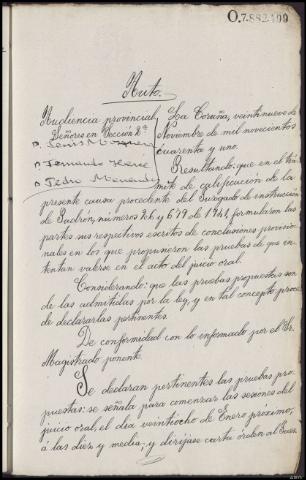 O.7.882,199
Auto.
Audiencia provincial
Señores en Sección 2ª
D. Jenis
D. Fernando
D. Pedro Menendez
La Coruña, veintinueve de
Noviembre de mil novecientos
cuarenta y uno.
Resultando: que en el trá-
mite de calificación de la
presente causa procedente del Juzgado de instrucción
de Padrón, números 76 y 679 de 1941 formularon las
partes sus respectivos escritos de conclusiones provisio-
nales en los que propusieron las pruebas de que in-
tentan valerse en el acto del juicio oral.
Considerando: que las pruebas propuestas son
de las admitidas por la ley, y en tal concepto procede
de declararlas pertinentes.
De conformidad con lo informado por el Sr.
Magistrado ponente.
Se declaran pertinentes las pruebas pro-
puestas: se señala para comenzar las sesiones del
juicio oral, el día veintiocho de Enero proximo,
á las diez y media, y dirijase carta órden al Juez